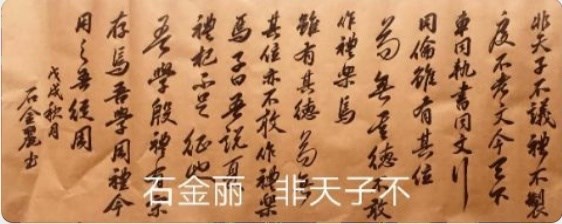 非天子不議禮不製
度不考文今天下
車同軌書同文行
同倫雖有其位
苟無其德不敢
作禮樂焉
雖有其德苟無
其位亦不敢作禮樂
焉子曰吾說夏
禮杞不足徵也
吾學殷禮有宋
存焉吾學周禮今
用之吾從周
戊戌秋月
石金麗书
石金丽 非天子不